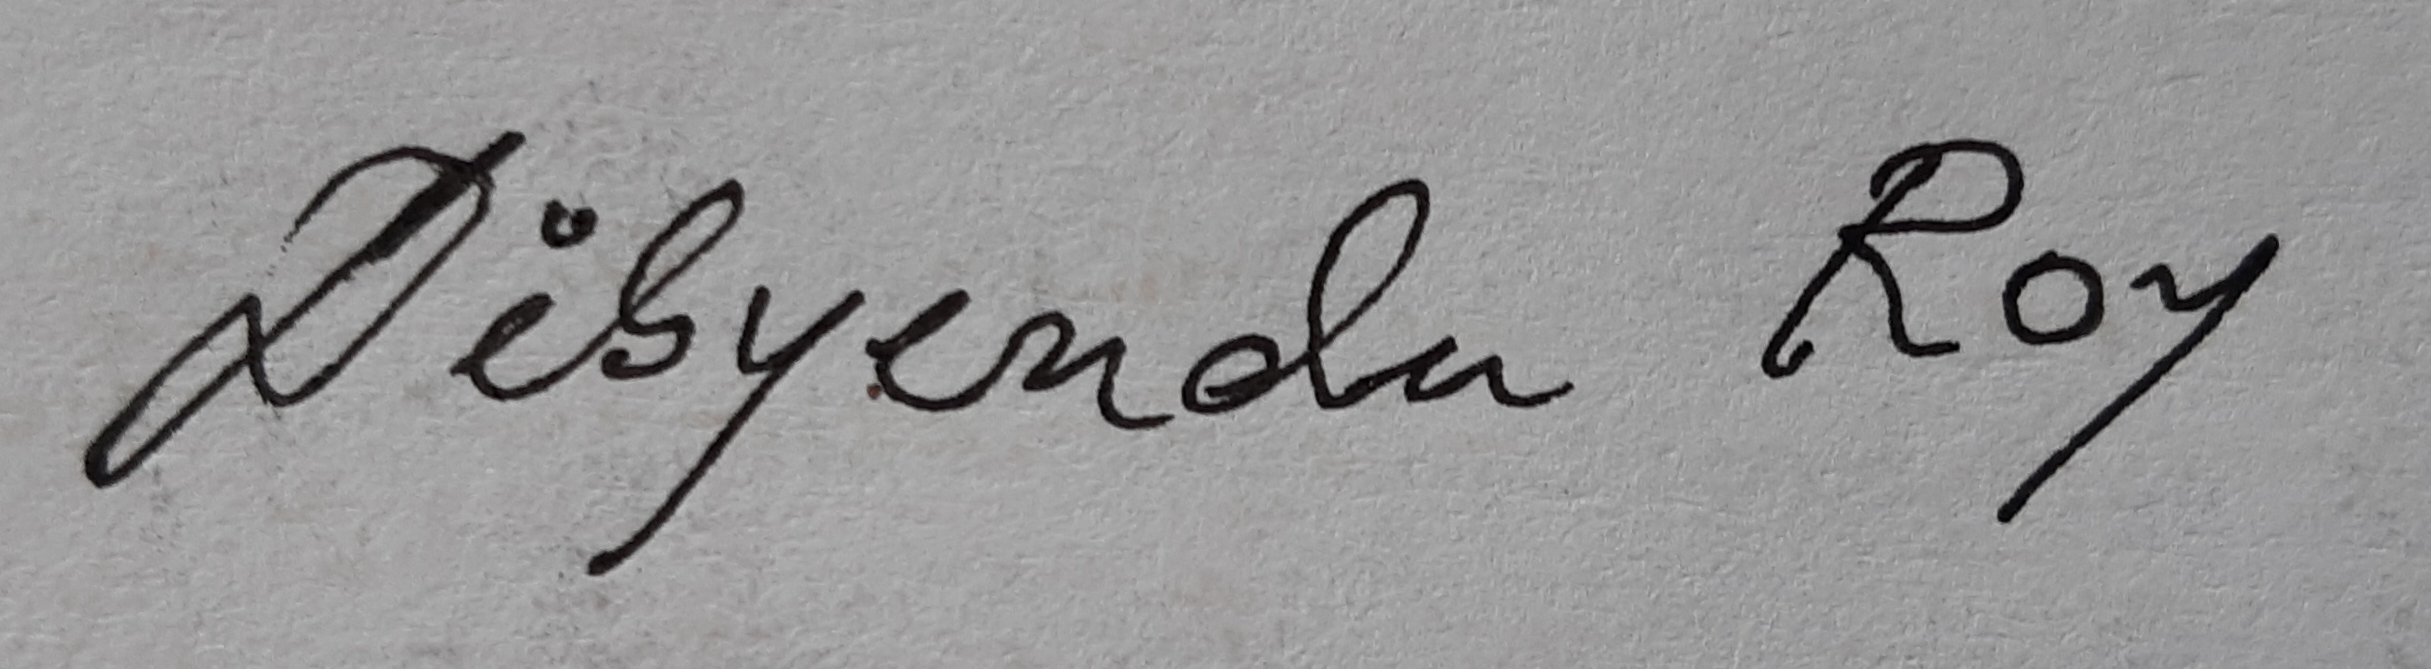 Dibyendu Roy